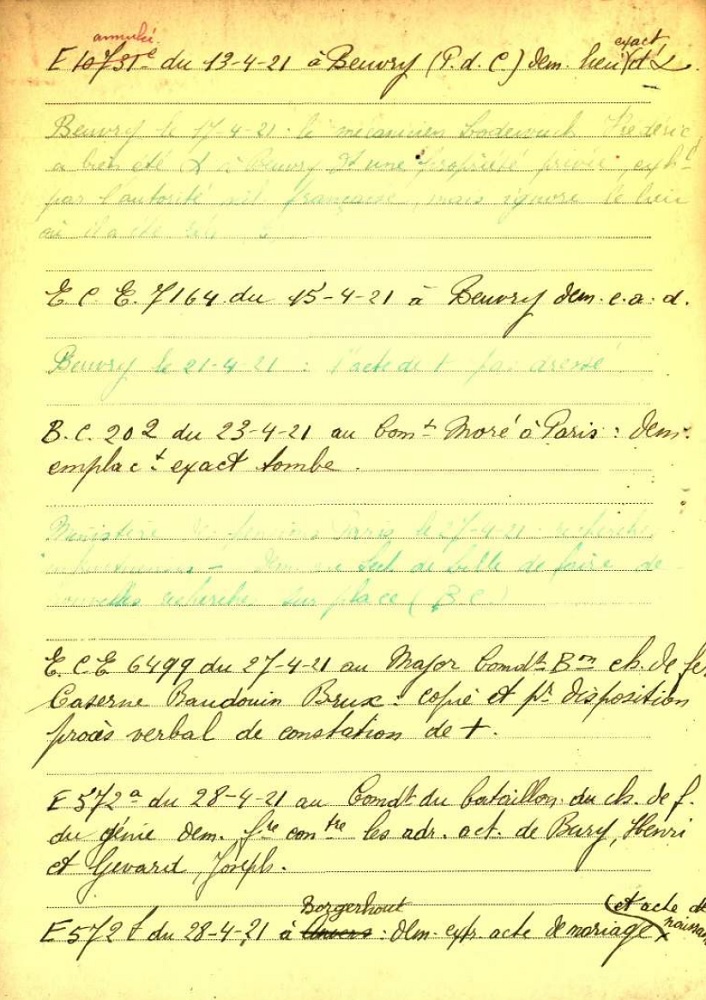 annulé exact
E 10731c du 13-4-21 à Beuvry (P. d. C.) dem. lieu d+
Beuvry le 17-4-21 : le mécanicien Lodewuck Frédéric
a bien été + à Beuvry une propriété privée,
par l'autorité française, mais ignore le lieu
où il a été
E. C. E. 7164 du 15-4-21 à Beuvry dem. e. a. d.
Beuvry le 21-4-21 : l'acte de + pas dressé
B. C. 202 du 23-4-21 au Comt Moré à Paris : dem.
emplact exact tombe.
Ministère de pensions Paris le 27-4-21 recherches
infructueuses - de faire de
nouvelles recherches sur place (B C)
E. C. E 6499 du 27-4-21 au Major Comdt Bon ch. de fe
Caserne Baudouin Brux : copie et pr disposition
procès verbal de constation de +.
E 572a du 28-4-21 au Comdt du bataillon du ch. de f.
du génie dem. fre contre les adr. act. de Bury, Henri
et Gevard, Joseph.
Borgerhout (et acte de naissan
E 572 t du 28-4-21 à Anvers : dem. extr. acte de mariage